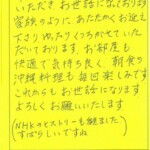 いただきお世話になっております
家族のように、あたたかくお迎え
下さり ゆったりくつろがせていた
だいております。お部屋も
快適で気持ち良く、朝食の
沖縄料理も毎回楽しみです
これからもお世話になります
よろしくお願いいたします
(NHKのヒストリーも観ました
すばらしいですね